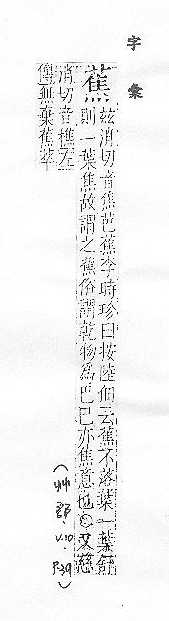 字彙
蕉
兹消切音焦芭蕉李時珍曰按陸佃云蕉不落葉一葉舒
則一葉焦故謂之蕉俗謂乾物爲巴巴亦焦意也○又慈
消切音樵左
傳無棄蕉萃
(艸部. V.10. P.39)